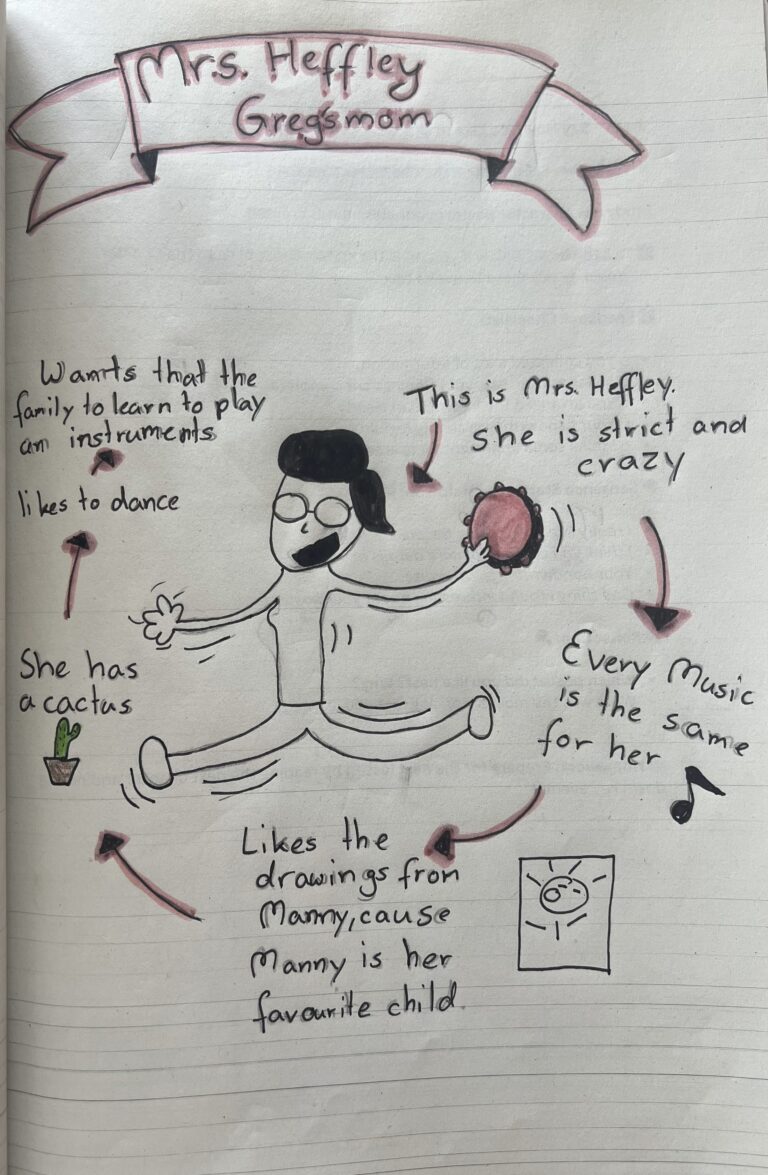 Mrs. Heffley
Gregs mom
This is Mrs. Heffley.
She is strict and
crazy
Every Music
is the same
for her
Likes the
drawings from
Manny, cause
Manny is her
favourite child.
She has
a cactus
likes to dance
Wants that the
family to learn to play
an instruments